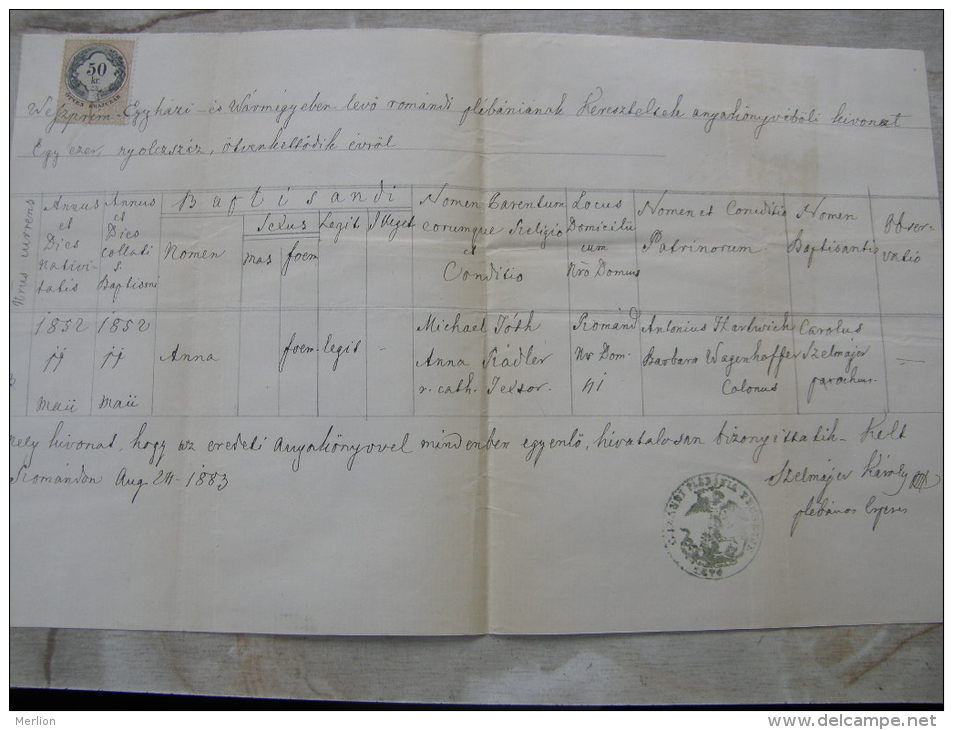 50
kr.
Veszprem Egyházi és Vármegyeben levő romándi plébániának Kereszteltek anyakönyvéböli kivonat
Egy ezer, nyolczszáz, ötvenkettődik évről
Nrus currens
Annus et Dies Nativitatis
Annus et Dies collati s. Baptismi
Baptisandi
Nomen
Sexus
mas
foem
Legit
Illeget
Nomen Parentum eorumque Religio et Conditio
Locus Domicilii cum Nro Domus
Nomen et Conditio Patrinorum
Nomen Baptisantis
Observatio
1852 jj Maii
1852 jj Maii
Anna
foem.
legit
-
Michael Tóth
Anna Rádler
r. cath. Textor.
Románd
Nr Dom.
41
Antonius Hartwich
Barbara Wagenhoffer
Colonus
Carolus
Szelmájer
parochus.
—
Mely kivonat, hogy az eredeti Anyakönyvvel mindenben egyenlő, hivatalosan bizonyittatik. Kelt
Romándon Aug 24 1883
Szelmájer Károly
plébános
Merlion
www.delcampe.net